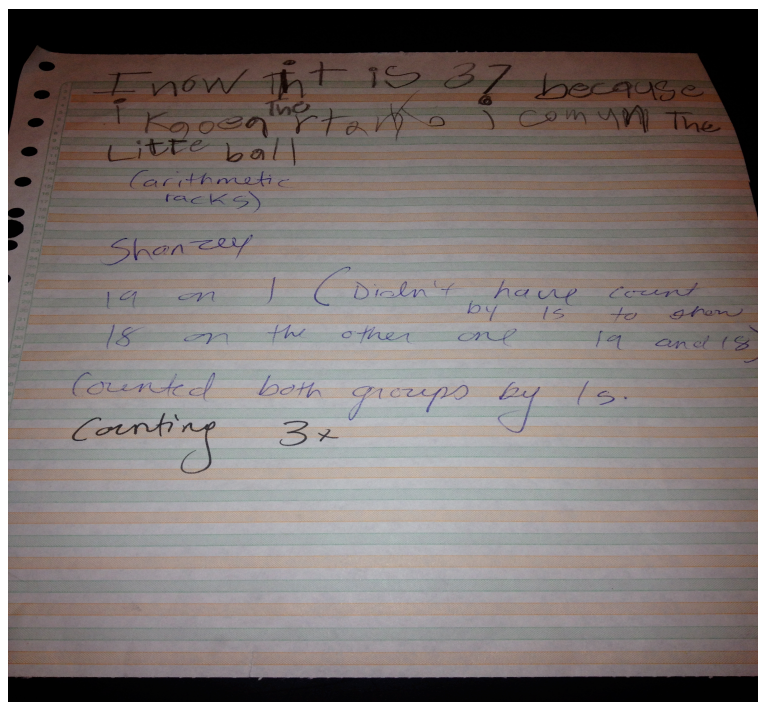 I now it is 37 because
i the i comun The
Litte ball
(arithmetic
racks)
Shanzey
19 on 1 (Didn't have count
by 1s to show
18 on the other one 19 and 18)
Counted both groups by 1s.
Counting 3x